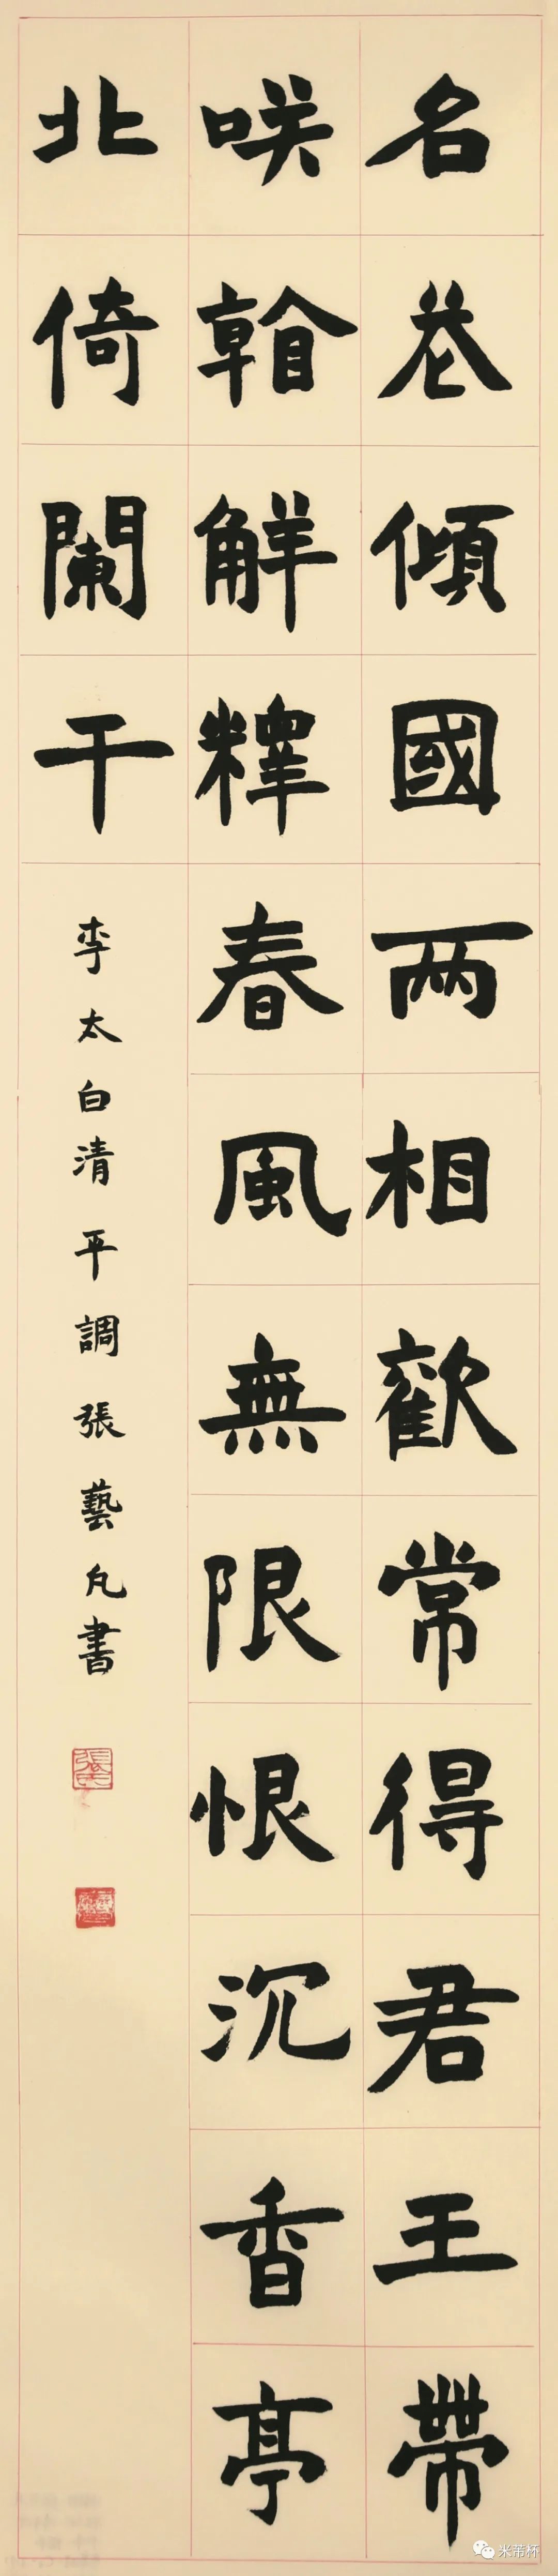 名花傾國两相歡常得君王帶
咲看觧釋春風無限恨沉香亭
北倚闌干
李太白清平調張藝凡書
米芾杯